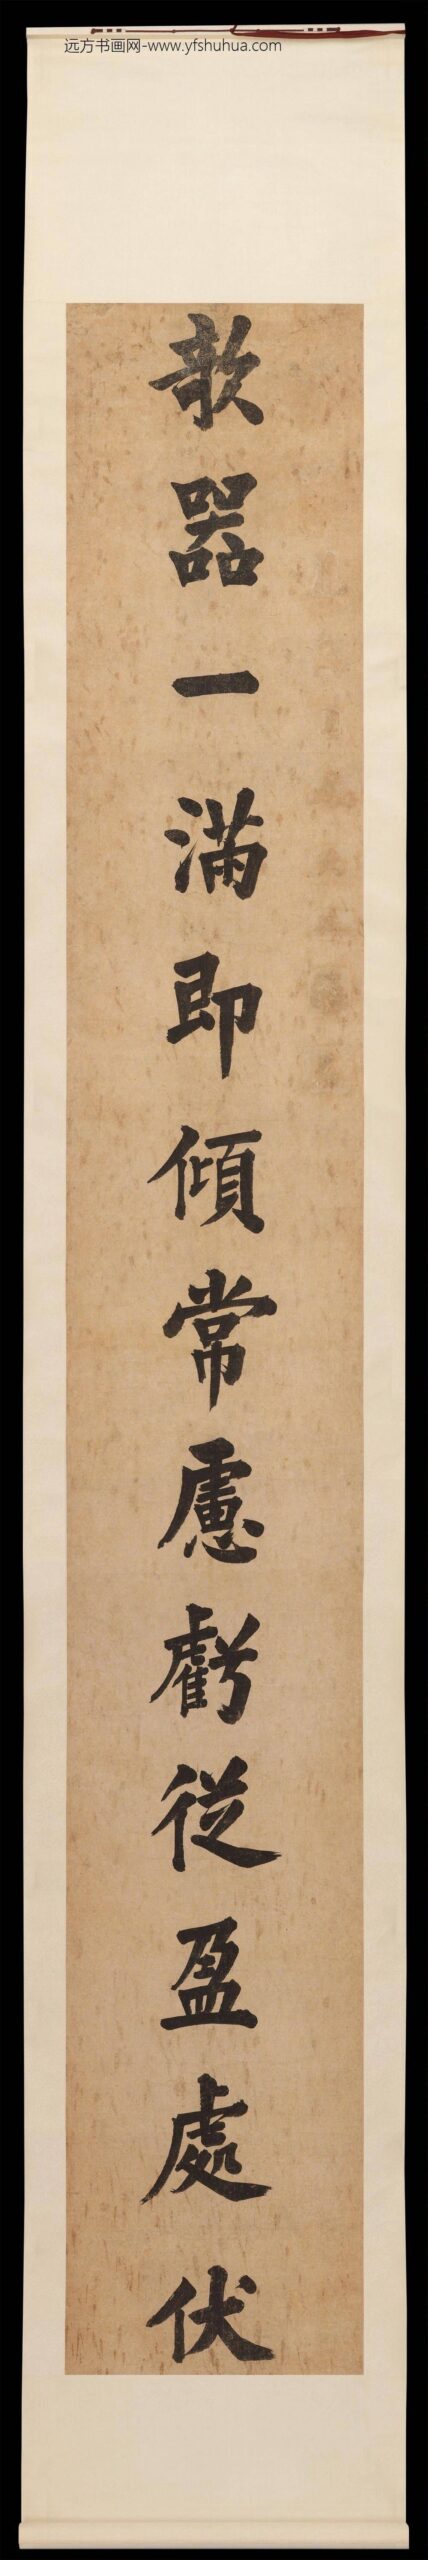 远方书画网-www.yfshuhua.com
欹器一滿即傾常慮虧從盈處伏